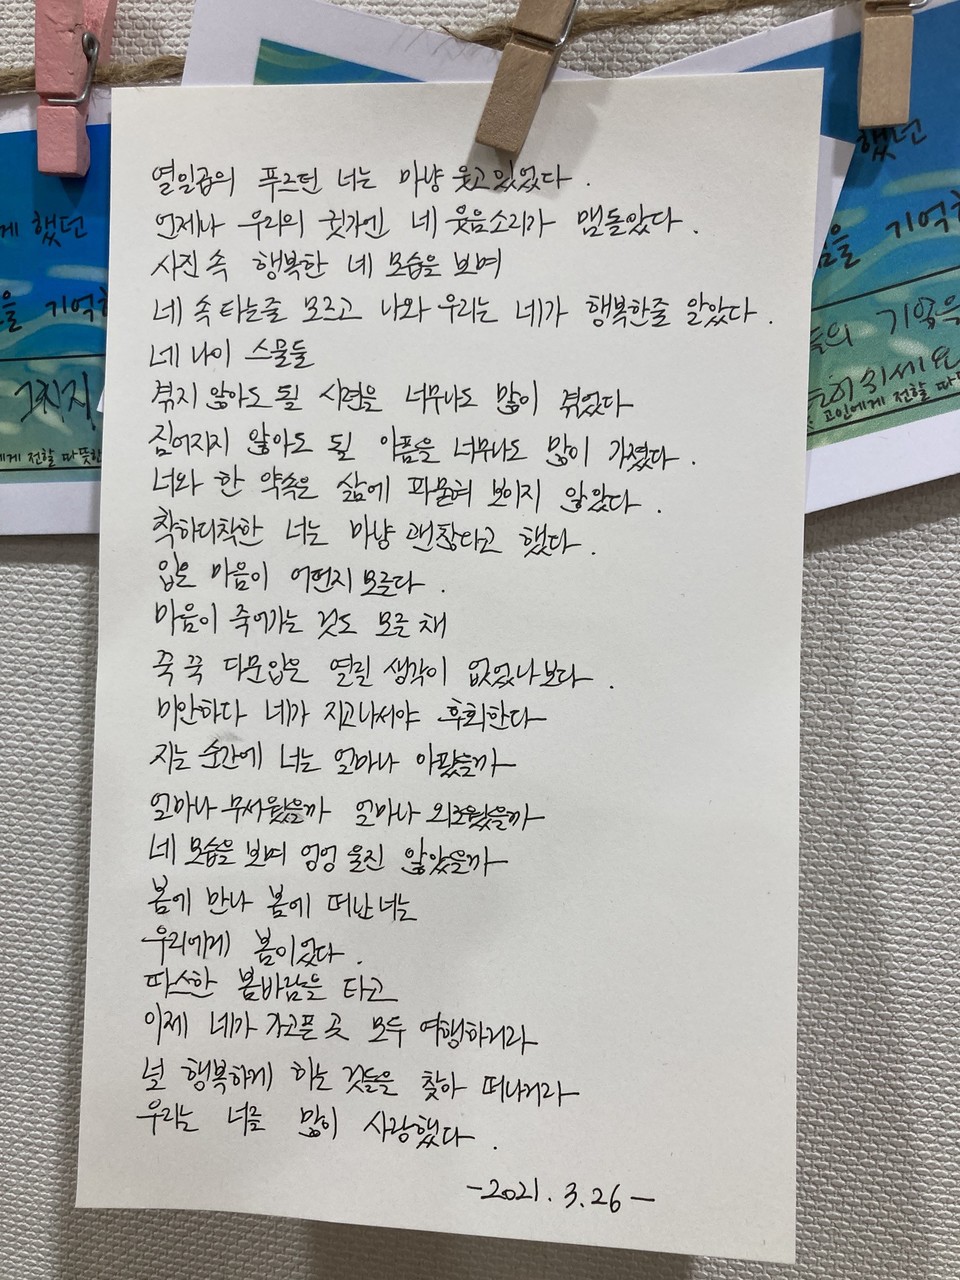 열일곱의 푸르던 너는 마냥 웃고있었다.
언제나 우리의 귓가엔 네 웃음소리가 맴돌았다.
사진 속 행복한 네 모습을 보며
네 속 타는줄 모르고 나와 우리는 네가 행복한줄 알았다.
네 나이 스물둘
겪지 않아도 될 시련을 너무나도 많이 겪었다
짊어지지 않아도 될 아픔을 너무나도 많이 가졌다.
너와 한 약속은 삶에 파묻혀 보이지 않았다.
착하디착한 너는 마냥 괜찮다고 했다.
입은 마음이 어떤지 모른다.
마음이 죽어가는 것도 모른 채
꾹 꾹 다문입은 열릴 생각이 없었나보다.
미안하다 네가 지고나서야 후회한다
지는 순간에 너는 얼마나 아팠을까
얼마나 무서웠을까 얼마나 외로웠을까
네 모습을 보며 엉엉 울진 않았을까
봄에 만나 봄에 떠난 너는
우리에게 봄이었다.
따스한 봄바람을 타고
이제 네가 가고픈 곳 모두 여행하거라
널 행복하게 하는 것들을 찾아 떠나거라
우리는 너를 많이 사랑했다.
-2021. 3. 26-
게 했던
을 기억
그치지
에게 전할 따뜻한
했던
을 기억
들의 기억을
히 쉬세요
고인에게 전할 따뜻